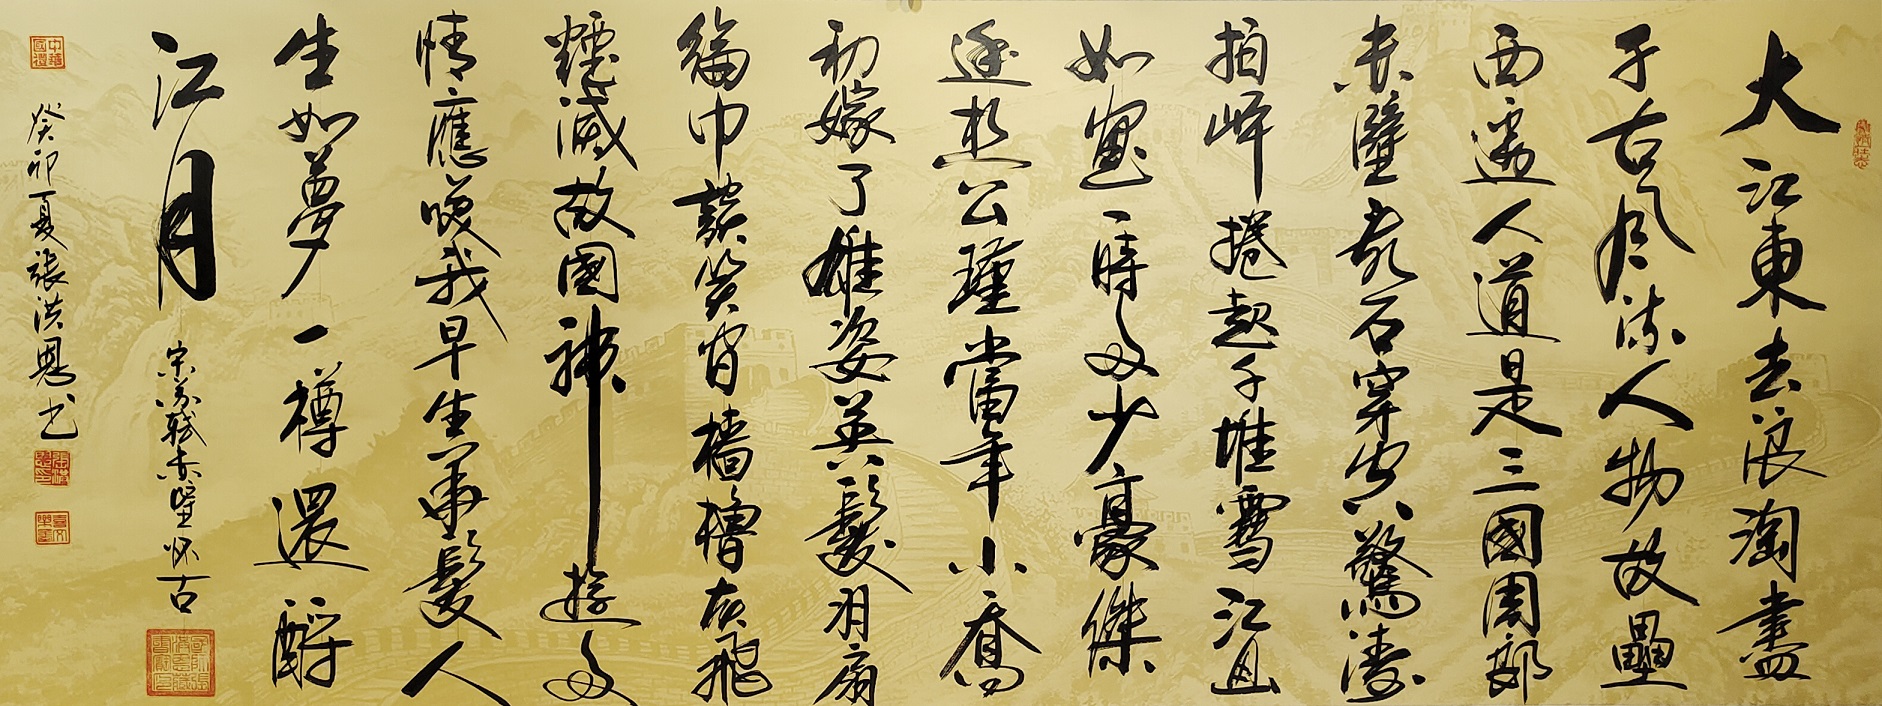 大江東去浪淘盡
千古風流人物故壘
西邊人道是三國周郎
赤壁亂石穿空驚濤
拍岸捲起千堆雪江山
如畫一時多少豪傑
遙想公瑾當年小喬
初嫁了雄姿英發羽扇
綸巾談笑間檣櫓灰飛
煙滅故國神遊多
情應笑我早生華髮人
生如夢一樽還酹
江月
宋蘇軾赤壁怀古
中華國禮
癸卯夏張洪恩书